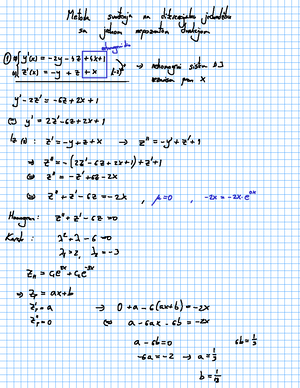 Metoda svođenja na diferencijalnu jednadžbu
sa jednom nepoznatom funkcijom
① y'(x) = -2y - 4z + 6x + 1
z'(x) = -y + z + x /·(-2) → nehomogeni sistem DJ
x
y' - 2z' = -6z + 2x + 1
y' = 2z' - 6z + 2x + 1
z' = -y + z + x → z'' = -y' + z' + 1
⇒ z'' = -(2z' - 6z + 2x + 1) + z' + 1
⇔ z'' = -z' + 6z - 2x
⇔ z'' + z' - 6z = -2x , μ=0 , -2x = -2x·e^{0x}
Homogena: z'' + z' - 6z = 0
λ² + λ - 6 = 0
λ₁ = 2, λ₂ = -3
z_H = C₁e^{2x} + C₂e^{-3x}
⇒ z_p = ax + b
z_p' = a → 0 + a - 6(ax+b) = -2x
z_p'' = 0 ⇔ a - 6ax - 6b = -2x
a - 6b = 0 6b = 1/3
-6a = -2 → a = 1/3
b = 1/18